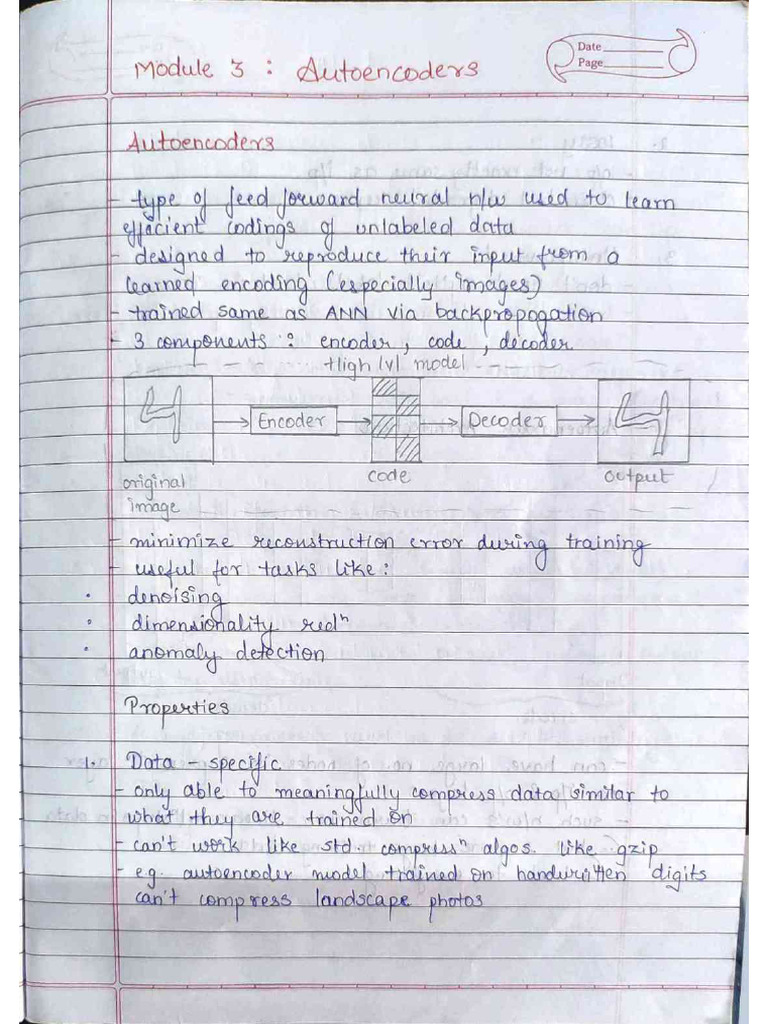 Date
Page
Module 3 : Autoencoders
Autoencoders
- type of feed forward neural n/w used to learn
efficient codings of unlabeled data
- designed to reproduce their input from a
learned encoding (especially images)
- trained same as ANN via backpropogation
- 3 components : encoder, code, decoder
High lvl model
Encoder
Decoder
original
image
code
output
- minimize reconstruction error during training
- useful for tasks like :
• denoising
• dimensionality redⁿ
• anomaly detection
Properties
1. Data - specific
- only able to meaningfully compress data similar to
what they are trained on
- can't work like std. compressⁿ algos. like gzip
- e.g. autoencoder model trained on handwritten digits
can't compress landscape photos